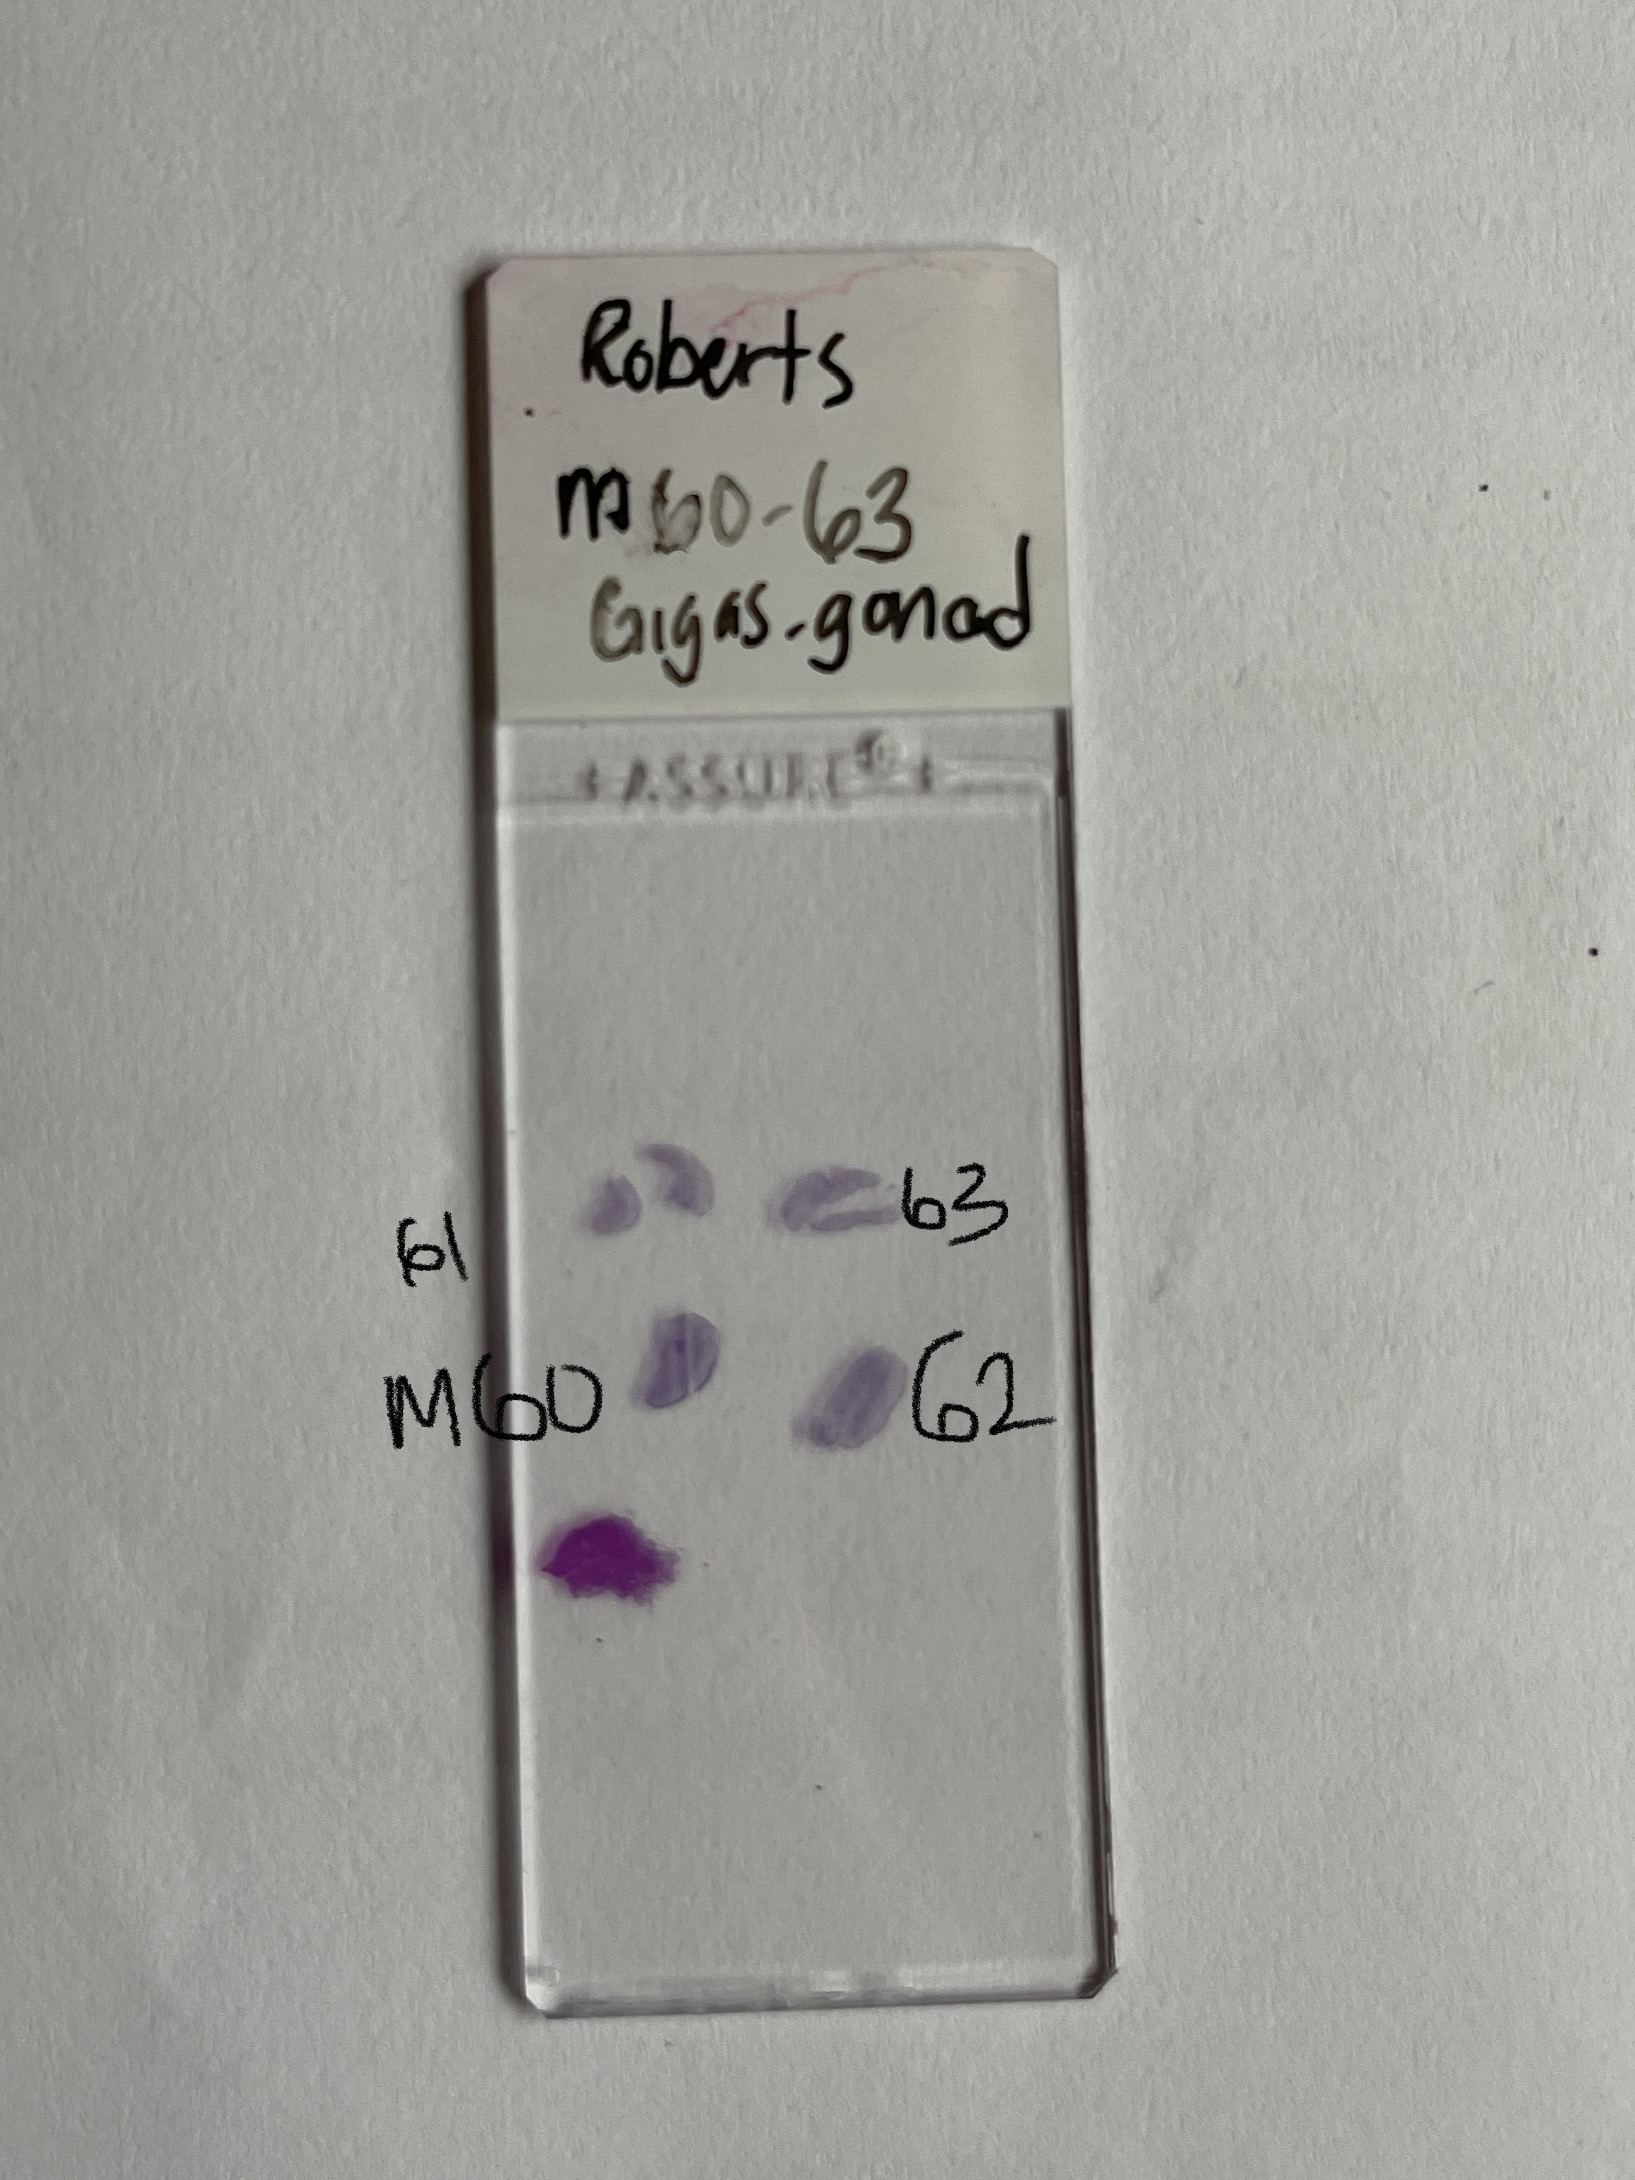 Roberts
M60-63
Gigas-gonad
+ ASSURE® +
61
63
M60
62